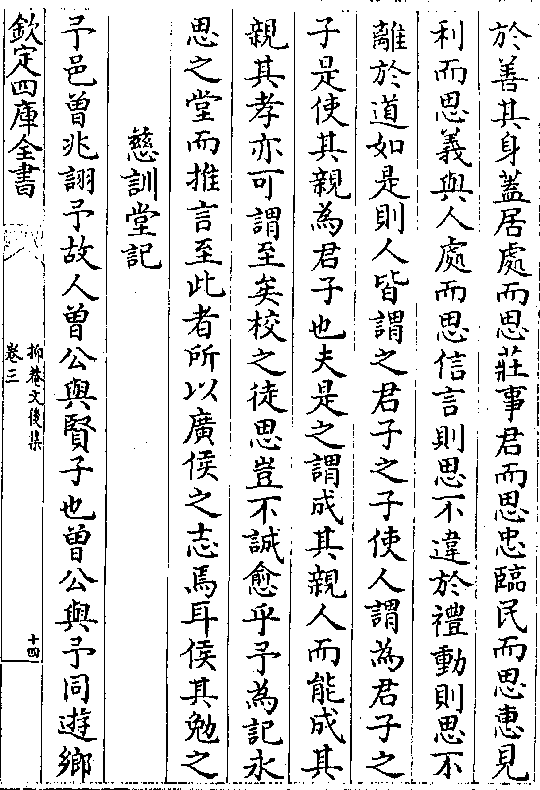 於善其身蓋居處而思莊事君而思忠臨民而思惠見
利而思義與人處而思信言則思不違於禮動則思不
離於道如是則人皆謂之君子之子使人謂為君子之
子是使其親為君子也夫是之謂成其親人而能成其
親其孝亦可謂至矣校之徒思豈不誠愈乎予為記永
思之堂而推言至此者所以廣侯之志焉耳侯其勉之
慈訓堂記
予邑曾兆詡予故人曾公與賢子也曾公與予同遊鄉
欽定四庫全書
抑菴文後集
卷三
十四